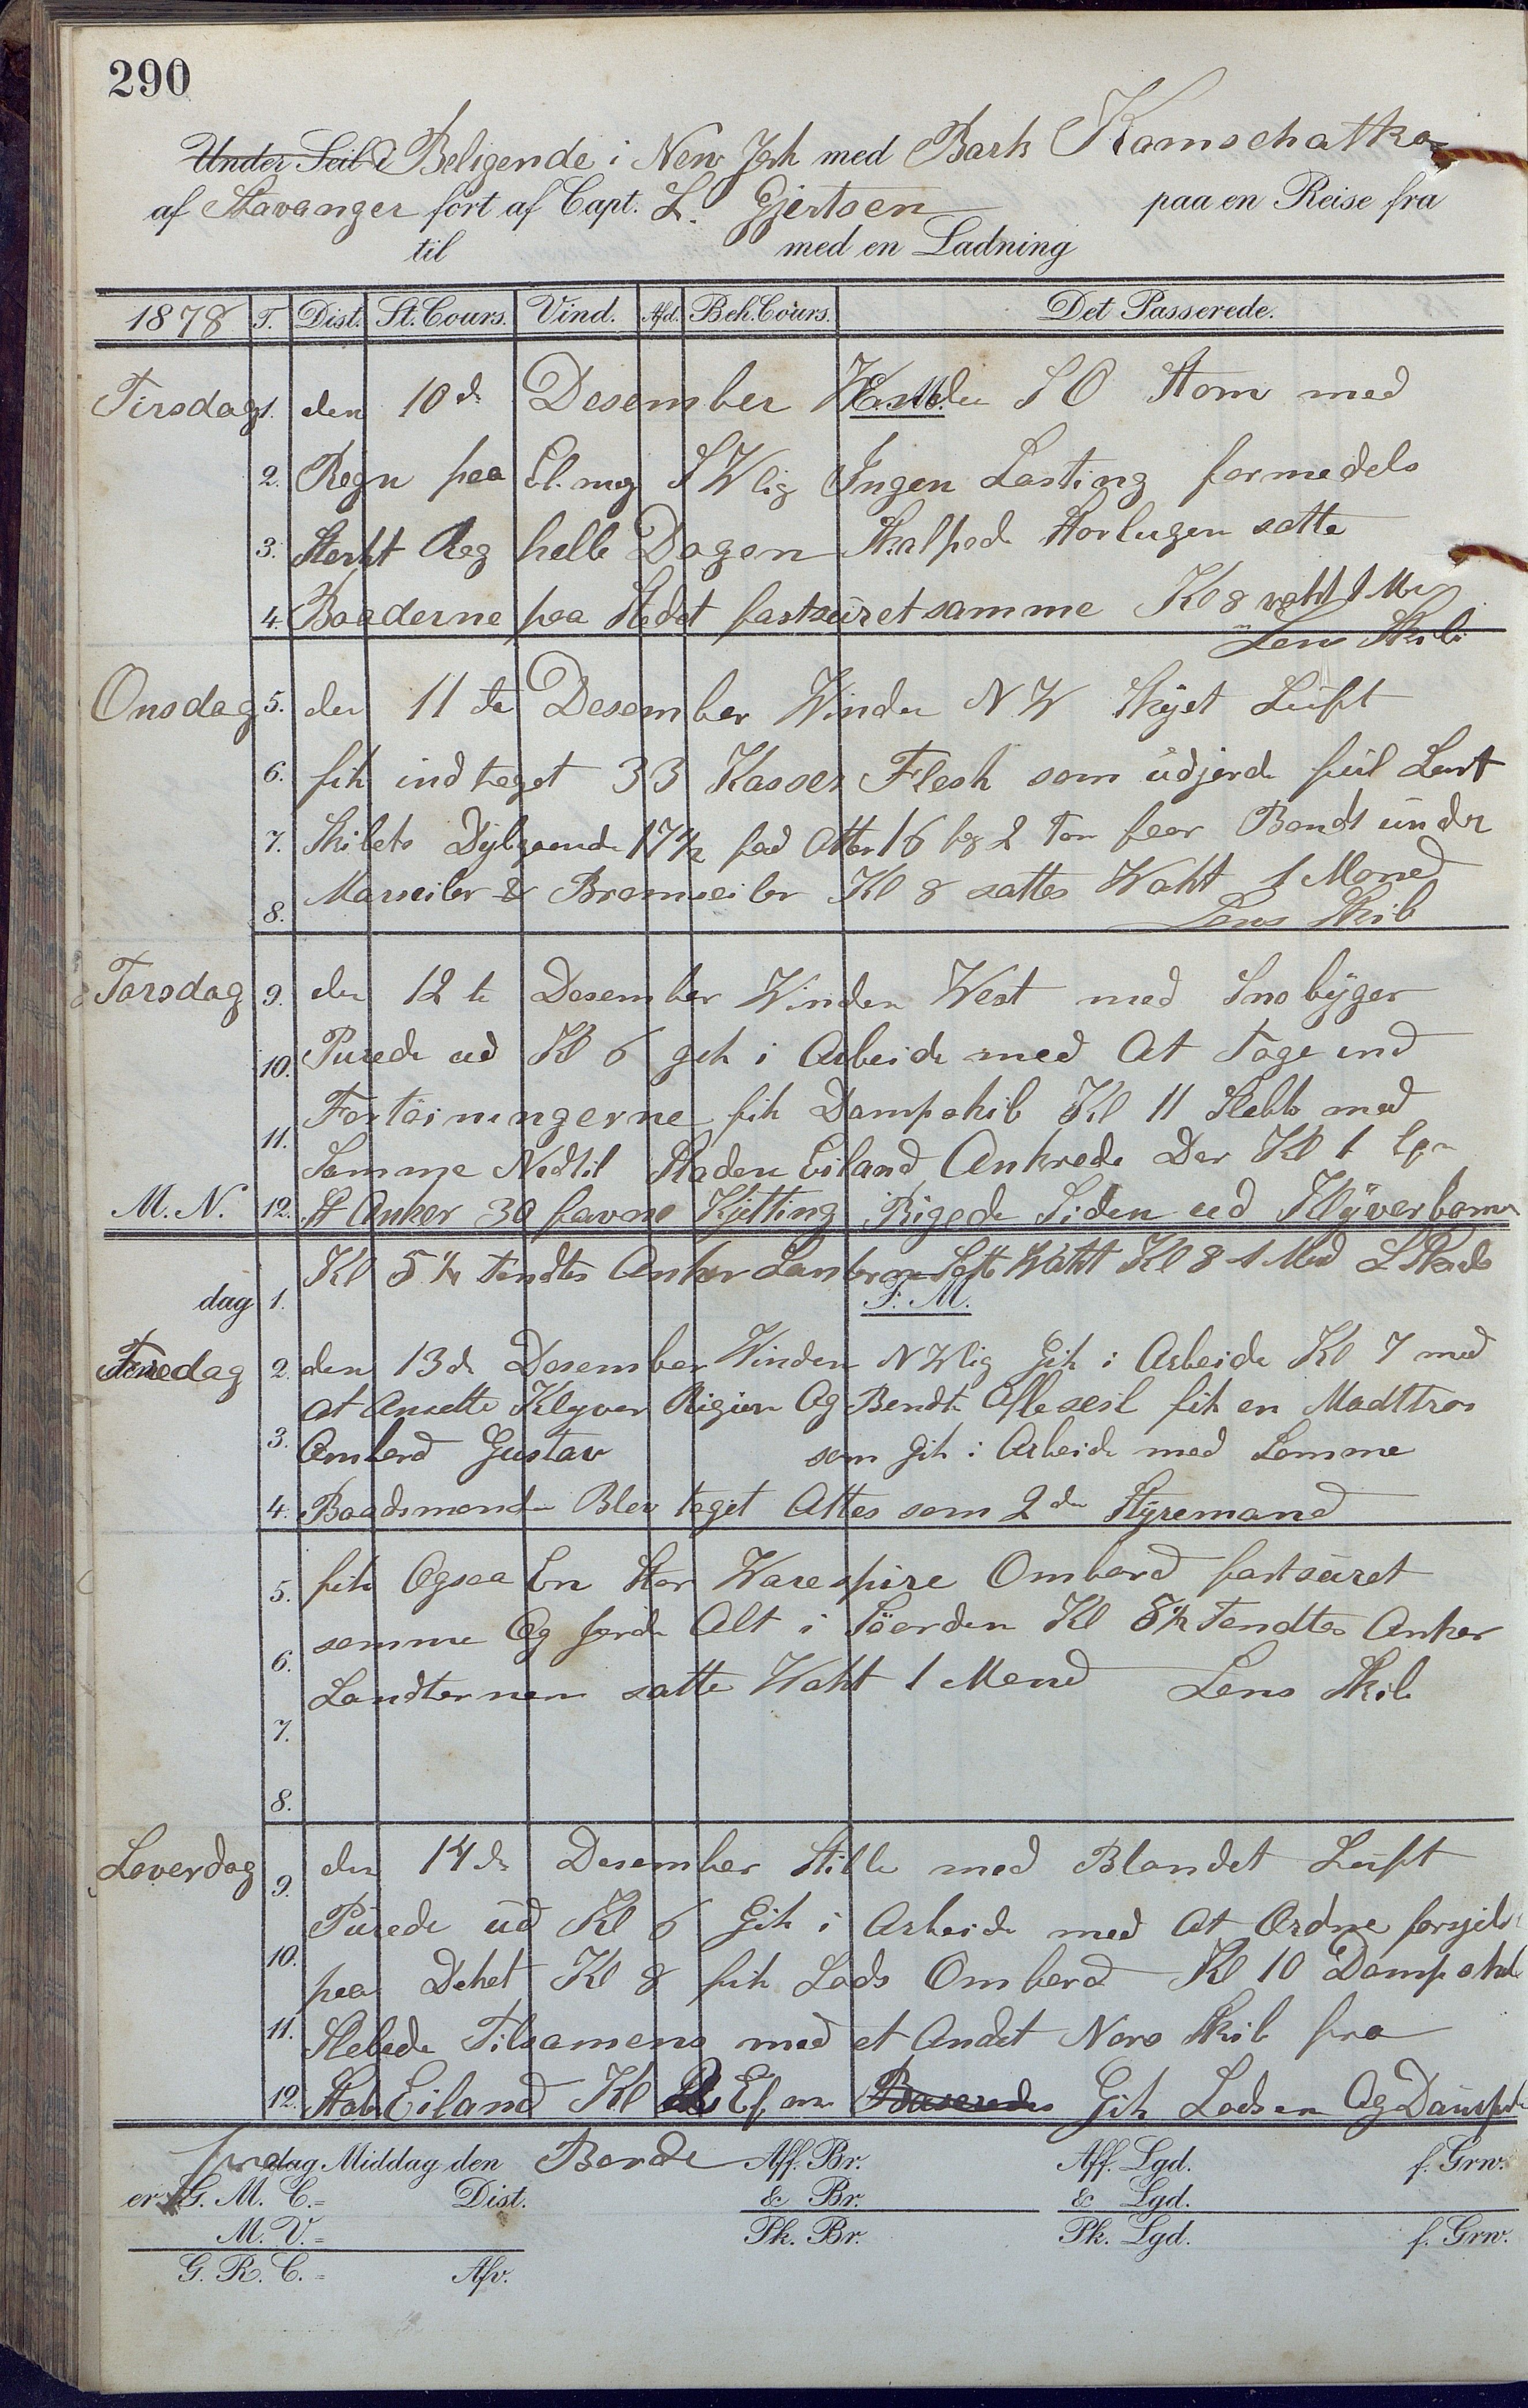 290
Under Seil d Beligende i New Jork med Bark Kamschatka
af Stavanger fört af Capt. L. Gjertsen paa en Reise fra
til med en Ladning
1878 T. Dist. St. Cours. Vind. Afd. Beh. Cours. Det Passerede.
E. M.
Tirsdag 1. den 10de Desember Vinden SO Storm med
2. Regn paa El. mg SWlig Ingen Lasting formedels
3. Sterkt Reg helle Dagen Skalpede Storlugen satte
4. Baaderne paa Stedet fastsüret samme Kl 8 waht 1 Man
Lens Skib
Onsdag 5. den 11te Desember Winden NW Skÿet Luft
6. fik indtaget 33 Kasser Flesk som üdjorde fuil Last
7. Skibets Dÿbgaende 17 1/2 fod Atter 16 fg 2 Tom foor Bendt ünder
8. Marseiler & Bramseiler Kl 8 sattes Waht 1 Maned
Lens Skib
Torsdag 9. den 12te Desember Winden West med Snobÿger
10. Purede ud Kl 6 gik i Arbeide med At Tage ind
11. Fortöiningerne fik Dampskib Kl 11 Slebte med
Samme Nedtil Staden Eiland Ankrede Der Kl 1
M. N. 12. St Anker 30 favne Kjetting Rigede Siden ud Klÿverbomen
Kl 5 1/2 tendtes Anker Lanteren Satte Waht Kl 8 1 Mad L Skib
dag 1. F. M.
Fredag 2. den 13de Desember Winden NWlig Gik i Arbeide Kl 7 med
at Ansette Klyver Rigien Og Bendte Aflesesil fik en Madttros
3. Ombord Gustav som Gik i Arbeide med Samme
4. Baadsmanden Blev taget Attes som 2den Stÿremand
5. fik Ogsaa En Stor Warespire Ombord fastsüret
6. samme Og jorde Alt i Söerden Kl 5 1/2 Tendtes Anker
Landternen satte Waht 1 Mand Lens Skib
7.
8.
Loverdag 9. den 14de Desember Stille med Blandet Luft
Pürede üd Kl 6 Gik i Arbeide med At Ordne forsjels
10. paa Deket Kl 8 fik Lods Ombord Kl 10 Dampskib
11. Slebede Tilsamens med et Andet Nors Skib fra
12. Staten Eiland Kl Ef m Paseredes Gik Lodsen Og Dampsk
fra dag Middag den Borde Aff. Br. Aff. Lgd. f. Grw.
er G. M. C.= Dist. & Br. & Lgd.
M. V.= Pk. Br. Pk. Lgd. f. Grw.
G. R. C.= Afv.